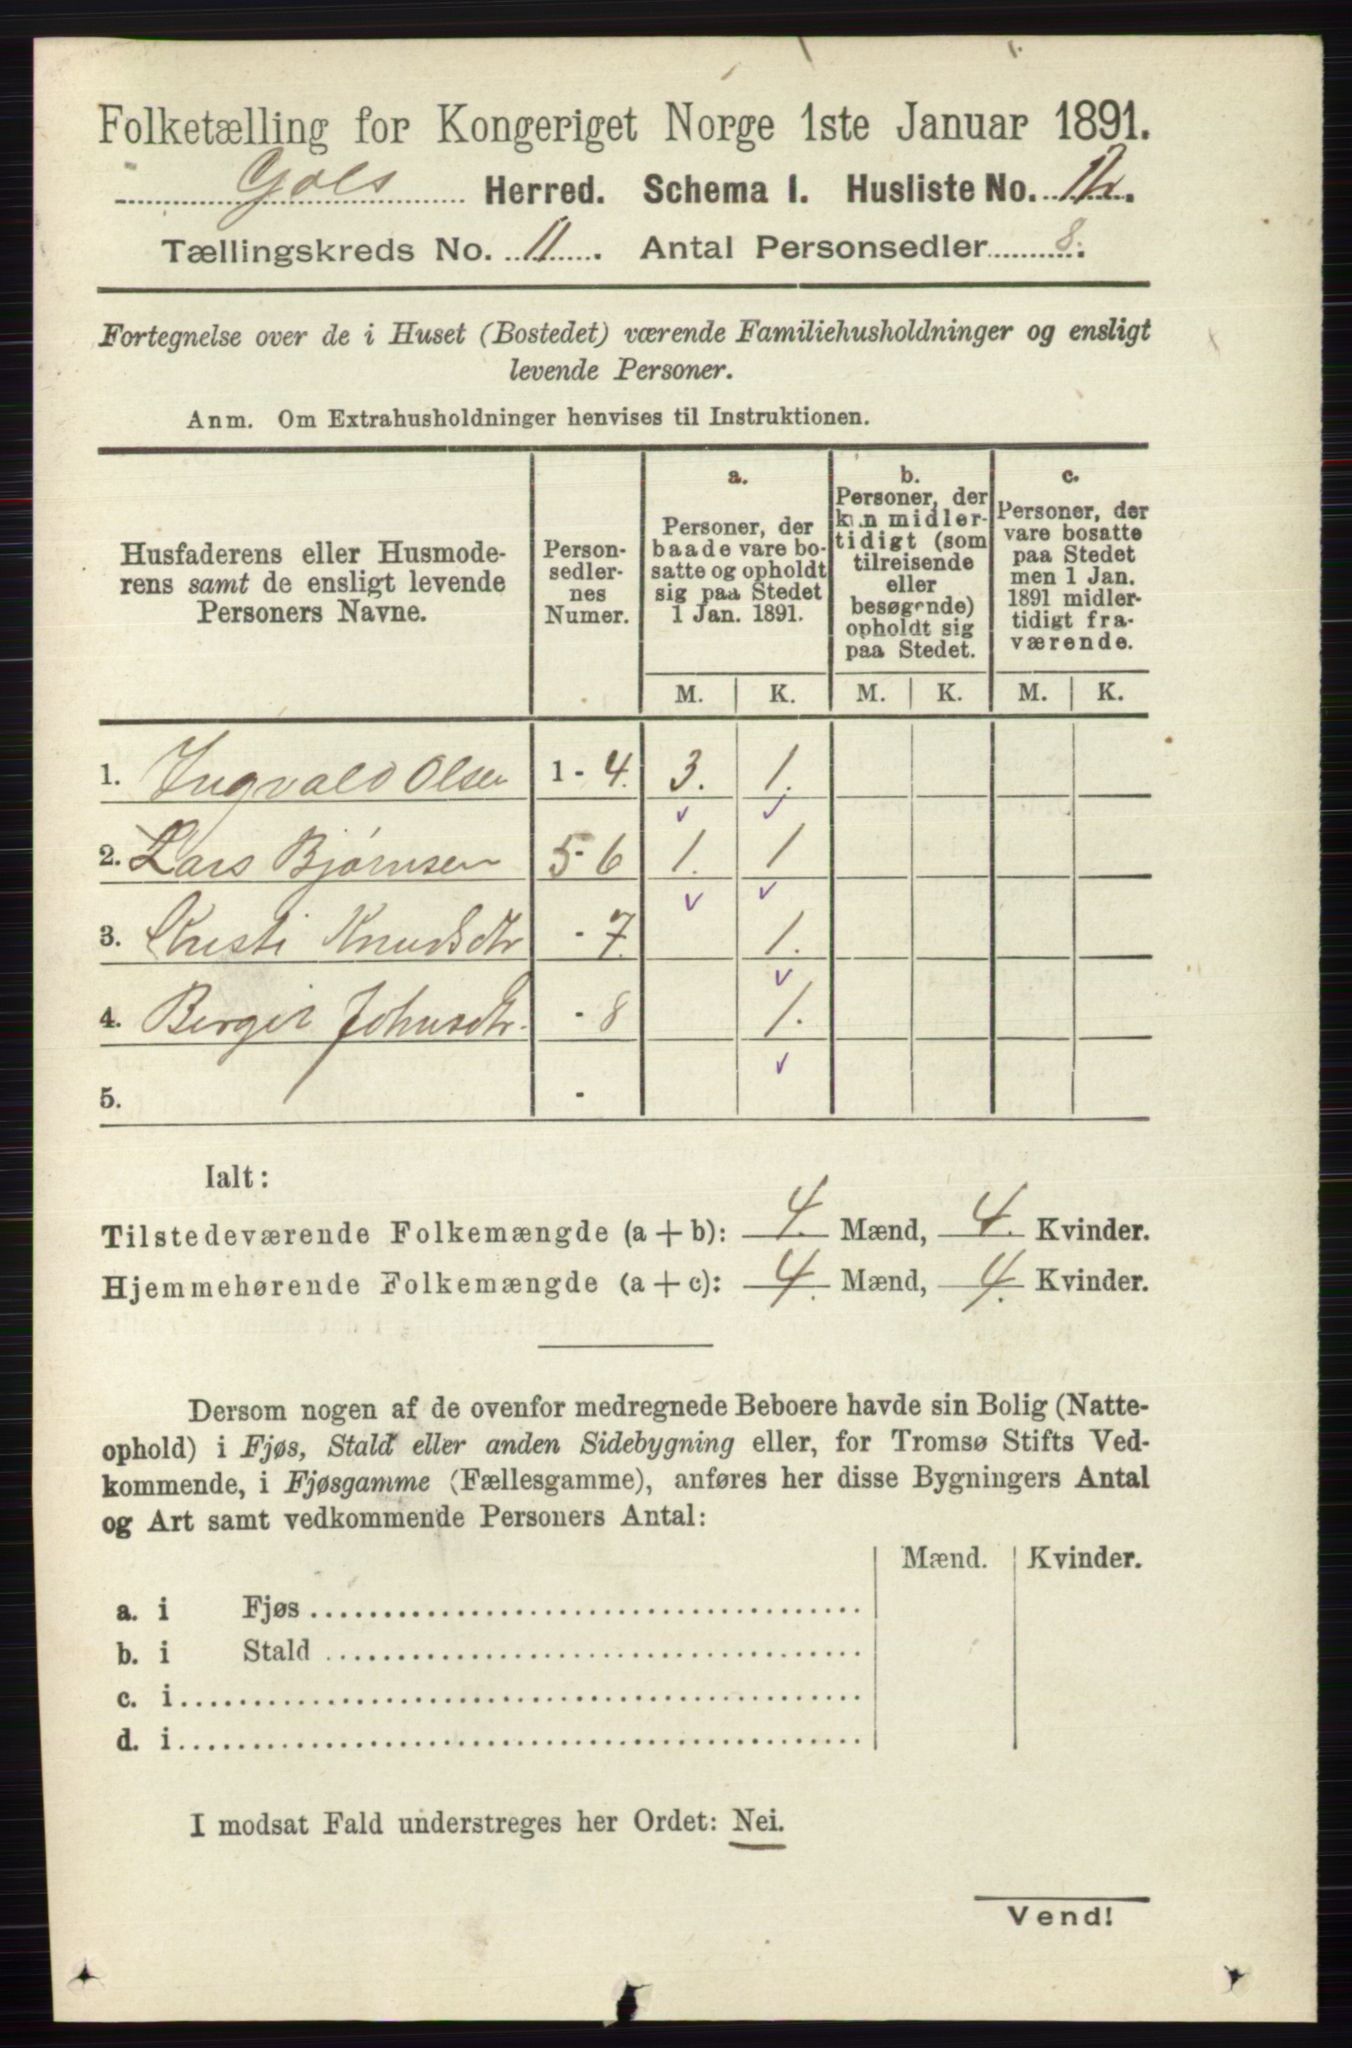 Folketælling for Kongeriget Norge 1ste Januar 1891.
Gols Herred. Schema I. Husliste No. 12.
Tællingskreds No. 11. Antal Personsedler 8.
Fortegnelse over de i Huset (Bostedet) værende Familiehusholdninger og ensligt
levende Personer.
Anm. Om Extrahusholdninger henvises til Instruktionen.
Husfaderens eller Husmode-
rens samt de ensligt levende
Personers Navne.
Person-
sedler-
nes
Numer.
a.
Personer, der
baade vare bo-
satte og opholdt
sig paa Stedet
1 Jan. 1891.
b.
Personer, der
kun midler-
tidigt (som
tilreisende
eller
besøgende)
opholdt sig
paa Stedet.
c.
Personer, der
vare bosatte
paa Stedet
men 1 Jan.
1891 midler-
tidigt fra-
værende.
M. K. M. K. M. K.
1. Ingvald Olsen 1 - 4. 3. 1.
2. Lars Bjørnsen 5 - 6 1. 1
3. Kristi Knudsdtr - 7. 1.
4. Birgit Johnsdtr. - 8 1.
5. -
Ialt:
Tilstedeværende Folkemængde (a + b): 4. Mænd, 4. Kvinder.
Hjemmehørende Folkemængde (a + c): 4. Mænd, 4. Kvinder.
Dersom nogen af de ovenfor medregnede Beboere havde sin Bolig (Natte-
ophold) i Fjøs, Stald eller anden Sidebygning eller, for Tromsø Stifts Ved-
kommende, i Fjøsgamme (Fællesgamme), anføres her disse Bygningers Antal
og Art samt vedkommende Personers Antal:
Mænd. Kvinder.
a. i Fjøs
b. i Stald
c. i
d. i
I modsat Fald understreges her Ordet: Nei.
Vend!